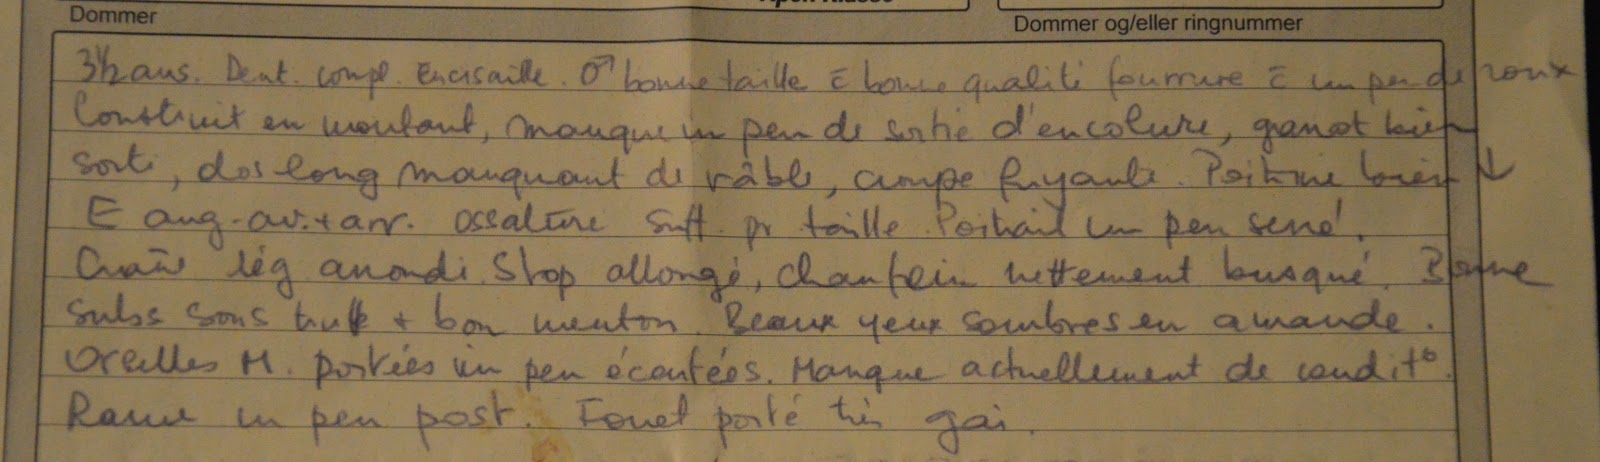 Åpen Klasse
Dommer
Dommer og/eller ringnummer
3½ ans. Dent. compl. En cisaille. ♂ bonne taille c̄ bonne qualité fourrure c̄ un peu de roux
Construit en montant, manque un peu de sortie d'encolure, garrot bien
sorti, dos long manquant de râble, croupe fuyante. Poitrine bien ↓
E ang. av. + arr. ossature suff. pr taille. Poitrail un peu serré.
Crâne lég arrondi. Stop allongé, chanfrein nettement busqué. Bonne
subs sous truffe + bon menton. Beaux yeux sombres en amande.
Oreilles M. portées un peu écartées. Manque actuellement de condit°.
Rame un peu post. Fouet porté très gai.